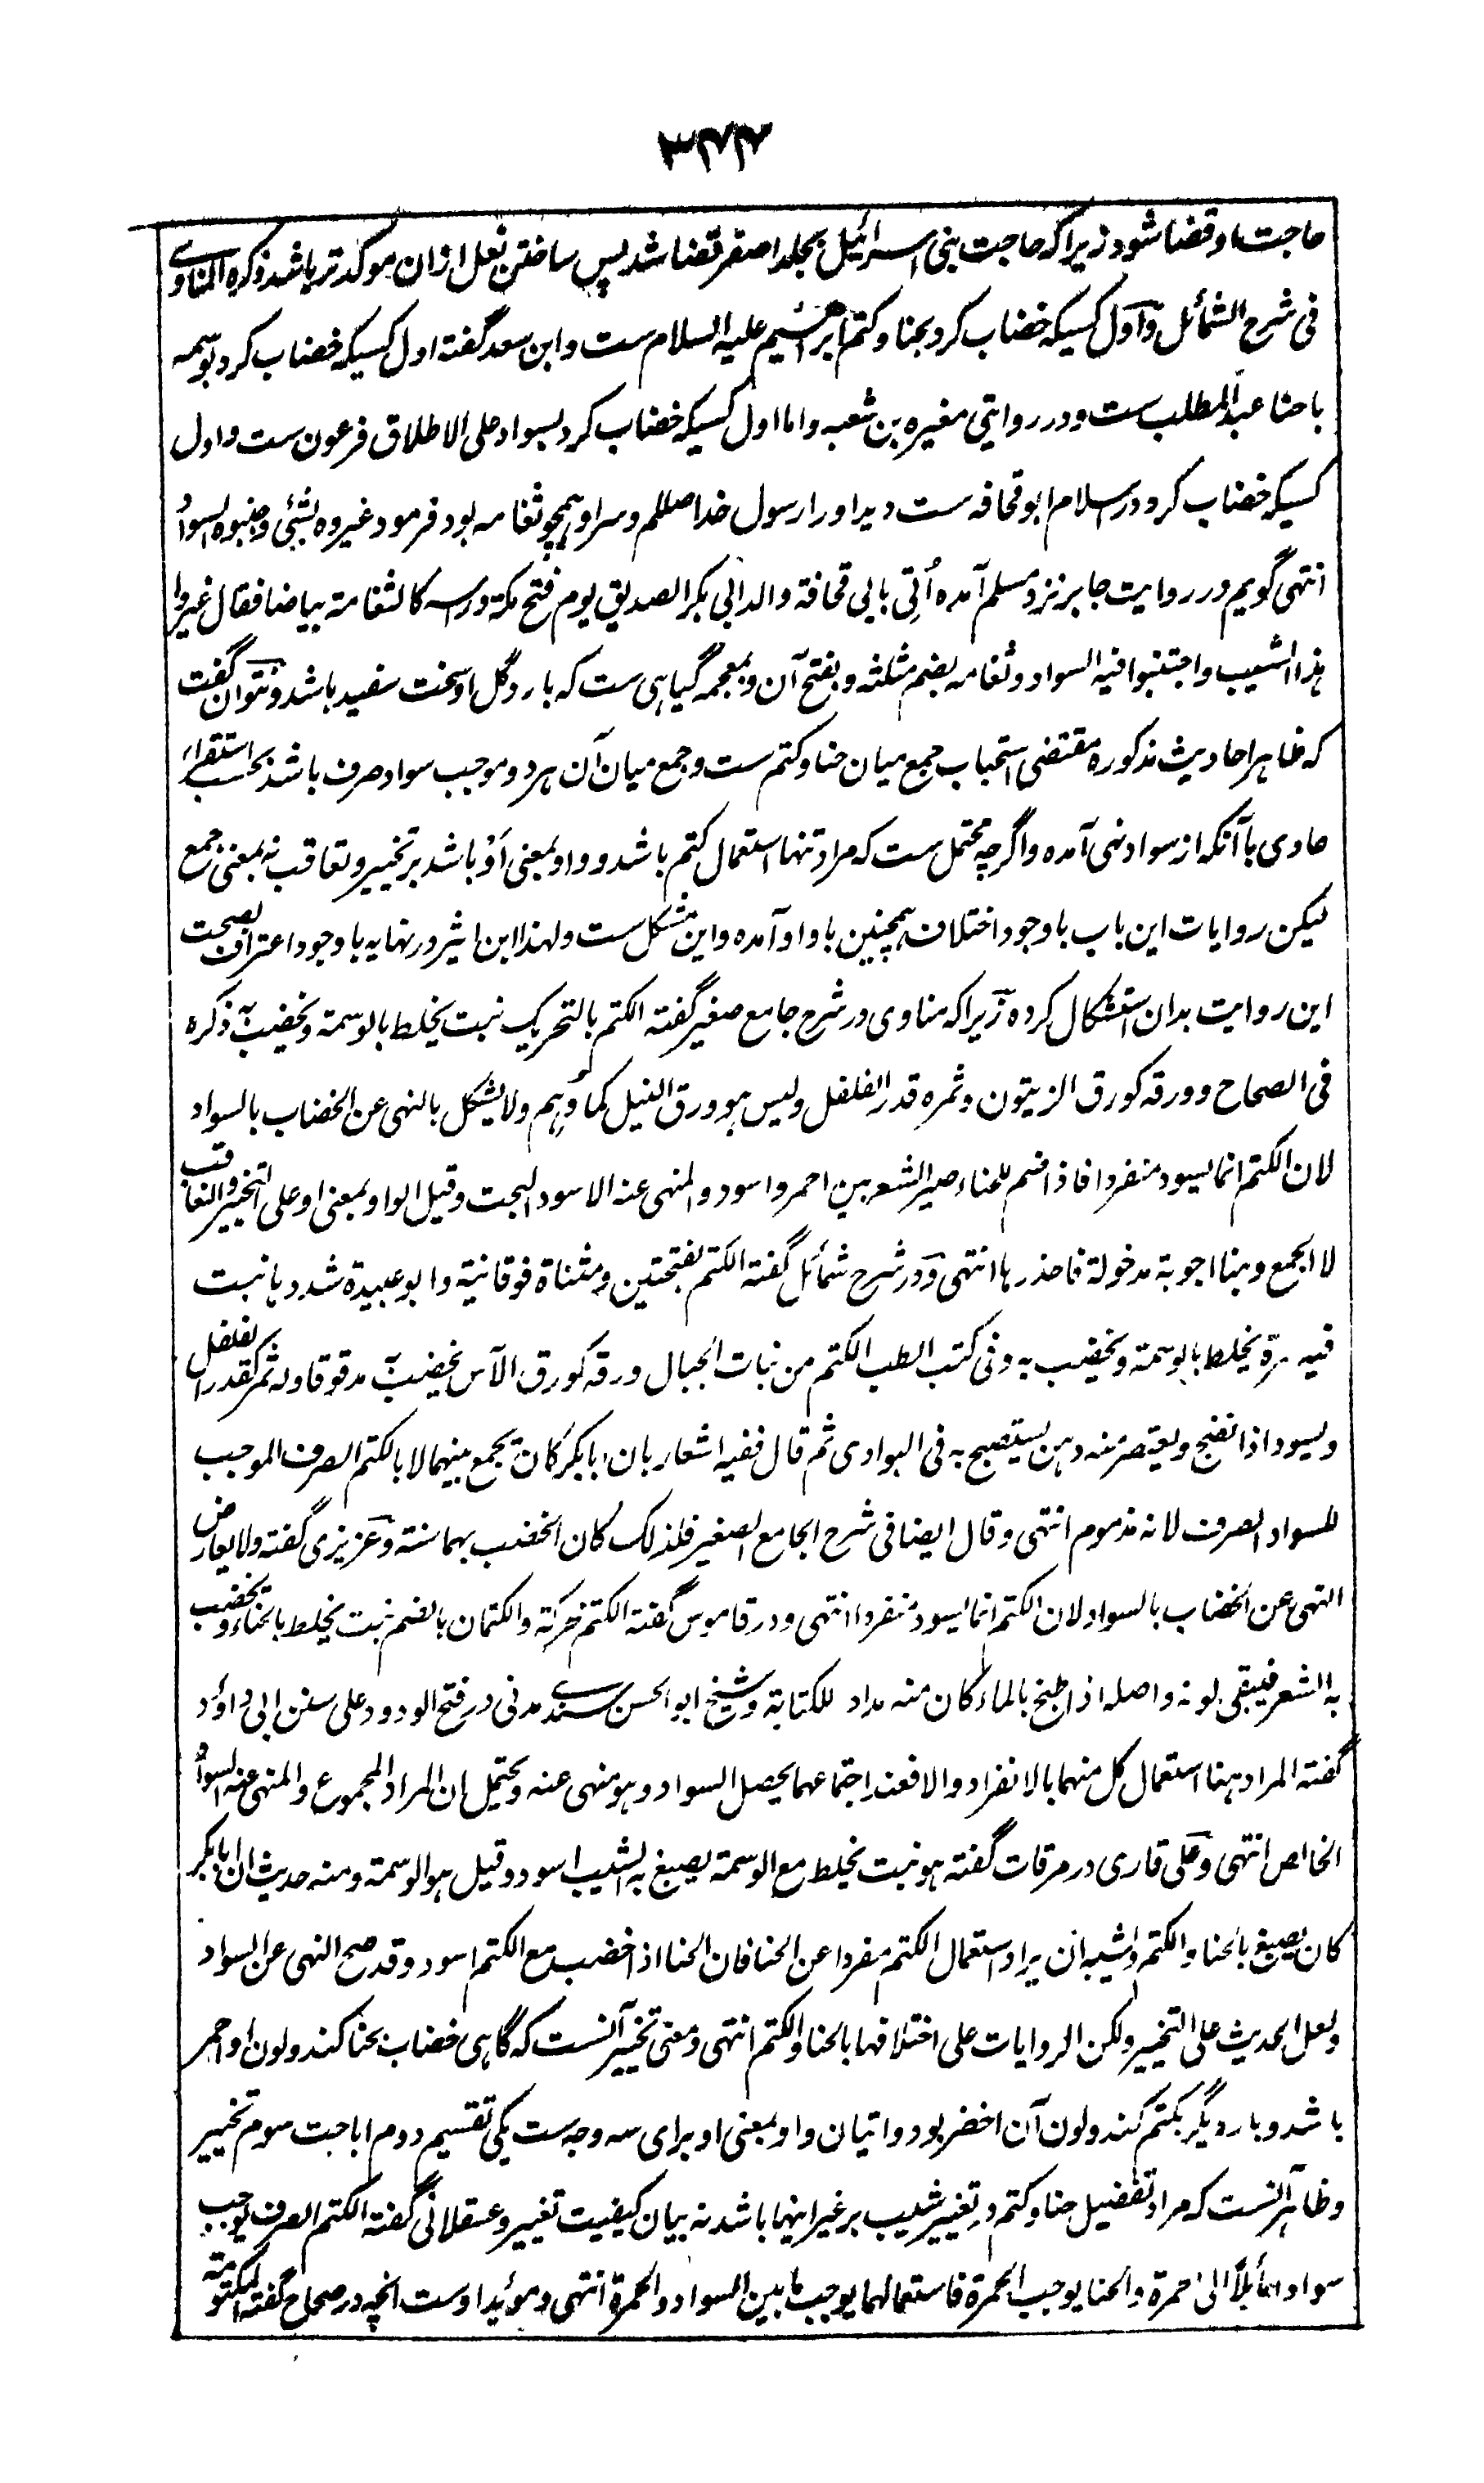 ۳۷۷
حاجت او قضا شود زیرا که حاجت بنی اسرائیل بجلد اصفر قضا شد پس ساختن نعل ازان موکد تر باشد ذکره المناوے
فی شرح الشمائل و اول کسیکه خضاب کرد بحنا و کتم ابراهیم علیه السلام ست و ابن سعد گفته اول کسیکه خضاب کرد بوسمه
با حنا عبد المطلب ست و در روایتی مغیره بن شعبه و اما اول کسیکه خضاب کرد بسواد علی الاطلاق فرعون ست و اول
کسیکه خضاب کرد در اسلام ابو قحافه ست دید او را رسول خدا صللم و سر او همچو ثغامه بود فرمود غیروه بشئی و جنبوه السواد
انتهی گویم و در روایت جابر نزد مسلم آمده اُتی بابی قحافة والد ابی بکر الصدیق یوم فتح مکة و راسه کالثغامة بیاضا فقال غیروا
هذا الشیب و اجتنبوا فیه السواد و ثغامه بضم مثلثه و بفتح آن و بمعجمه گیاهی ست که بار و گل او سخت سفید باشد و نتوان گفت
که ظاهر احادیث مذکوره مقتضی استحباب جمع میان حنا و کتم ست و جمع میان آن هر دو موجب سواد صرف باشد بحسب استقراء
عادی با آنکه از سواد نهی آمده و اگرچه محتمل ست که مراد تنها استعمال کتم باشد و واو بمعنی اَوْ باشد بر تخییر و تعاقب نه بمعنی جمع
لیکن روایات این باب با وجود اختلاف همچنین با واو آمده و این مشکل ست و لهذا ابن اثیر در نهایه با وجود اعتراف بصحت
این روایت بدان استشکال کرده زیرا که مناوی در شرح جامع صغیر گفته الکتم بالتحریک نبت یخلط بالوسمة و یخضب به ذکره
فی الصحاح و ورقه کورق الزیتون و ثمره قدر الفلفل و لیس هو ورق النیل کما وهم و لا یشکل بالنهی عن الخضاب بالسواد
لان الکتم انما یسود منفردا فاذا ضم للحناء صیر الشعر بین احمر و اسود و المنهی عنه الاسود البحت و قیل الواو بمعنی او علی التخییر و التعاقب
لا الجمع و هنا اجوبة مدخولة فاحذرها انتهی و در شرح شمائل گفته الکتم بفتحتین و مثناة فوقانیة و ابو عبیدة شددها نبت
فیه حمرة یخلط بالوسمة و یخضب به و فی کتب الطب الکتم من نبات الجبال ورقه کورق الآس یخضب به مدقوقا و له ثمر کقدر الفلفل
و یسود اذا نضج و یعتصر منه دهن یستصبح به فی البوادی ثم قال ففیه اشعار بان ابا بکر کان یجمع بینهما لا بالکتم الصرف الموجب
للسواد الصرف لانه مذموم انتهی و قال ایضا فی شرح الجامع الصغیر فلذلک کان الخضب بهما سنة و عزیزی گفته و لا یعارض
النهی عن الخضاب بالسواد لان الکتم انما یسود منفردا انتهی و در قاموس گفته الکتم محرکة و الکتمان بالضم نبت یخلط بالحناء و یخضب
به الشعر فیبقی لونه و اصله اذا طبخ بالماء کان منه مداد للکتابة و شیخ ابو الحسن سندے مدنی در فتح الودود علی سنن ابی داؤد
گفته المراد هنا استعمال کل منهما بالانفراد و الا فعند اجتماعهما یحصل السواد و هو منهی عنه و یحتمل ان المراد المجموع و المنهی عنه السواد
الخالص انتهی و علی قاری در مرقات گفته هو نبت یخلط مع الوسمة یصبغ به الشیب اسود و قیل هو الوسمة و منه حدیث ان ابا بکر
کان یصبغ بالحنا و الکتم و یشبه ان یراد استعمال الکتم مفردا عن الحنا فان الحنا اذا خضب مع الکتم اسود و قد صح النهی عن السواد
و لعل الحدیث علی التخییر و لکن الروایات علی اختلافها بالحنا و الکتم انتهی و معنی تخییر آنست که گاهی خضاب بحنا کند و لون او احمر
باشد و بار دیگر بکتم کند و لون آن اخضر بود و اتیان واو بمعنی او برای سه وجه ست یکی تقسیم دوم اباحت سوم تخییر
و ظاهر آنست که مراد تفضیل حنا و کتم در تغییر شیب بر غیر اینهما باشد نه بیان کیفیت تغییر و عسقلانی گفته الکتم الصرف یوجب
سوادا مائلاً الی الحمرة و الحنا یوجب الحمرة فاستعمالهما یوجب ما بین السواد و الحمرة انتهی و موئید اوست انچه در صحاح گفته المکتومة